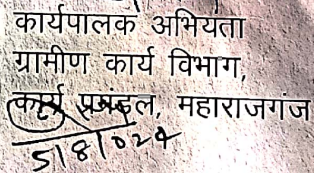 कार्यपालक अभियता
ग्रामीण कार्य विभाग,
कार्य प्रमंडल, महाराजगंज
5/8/024